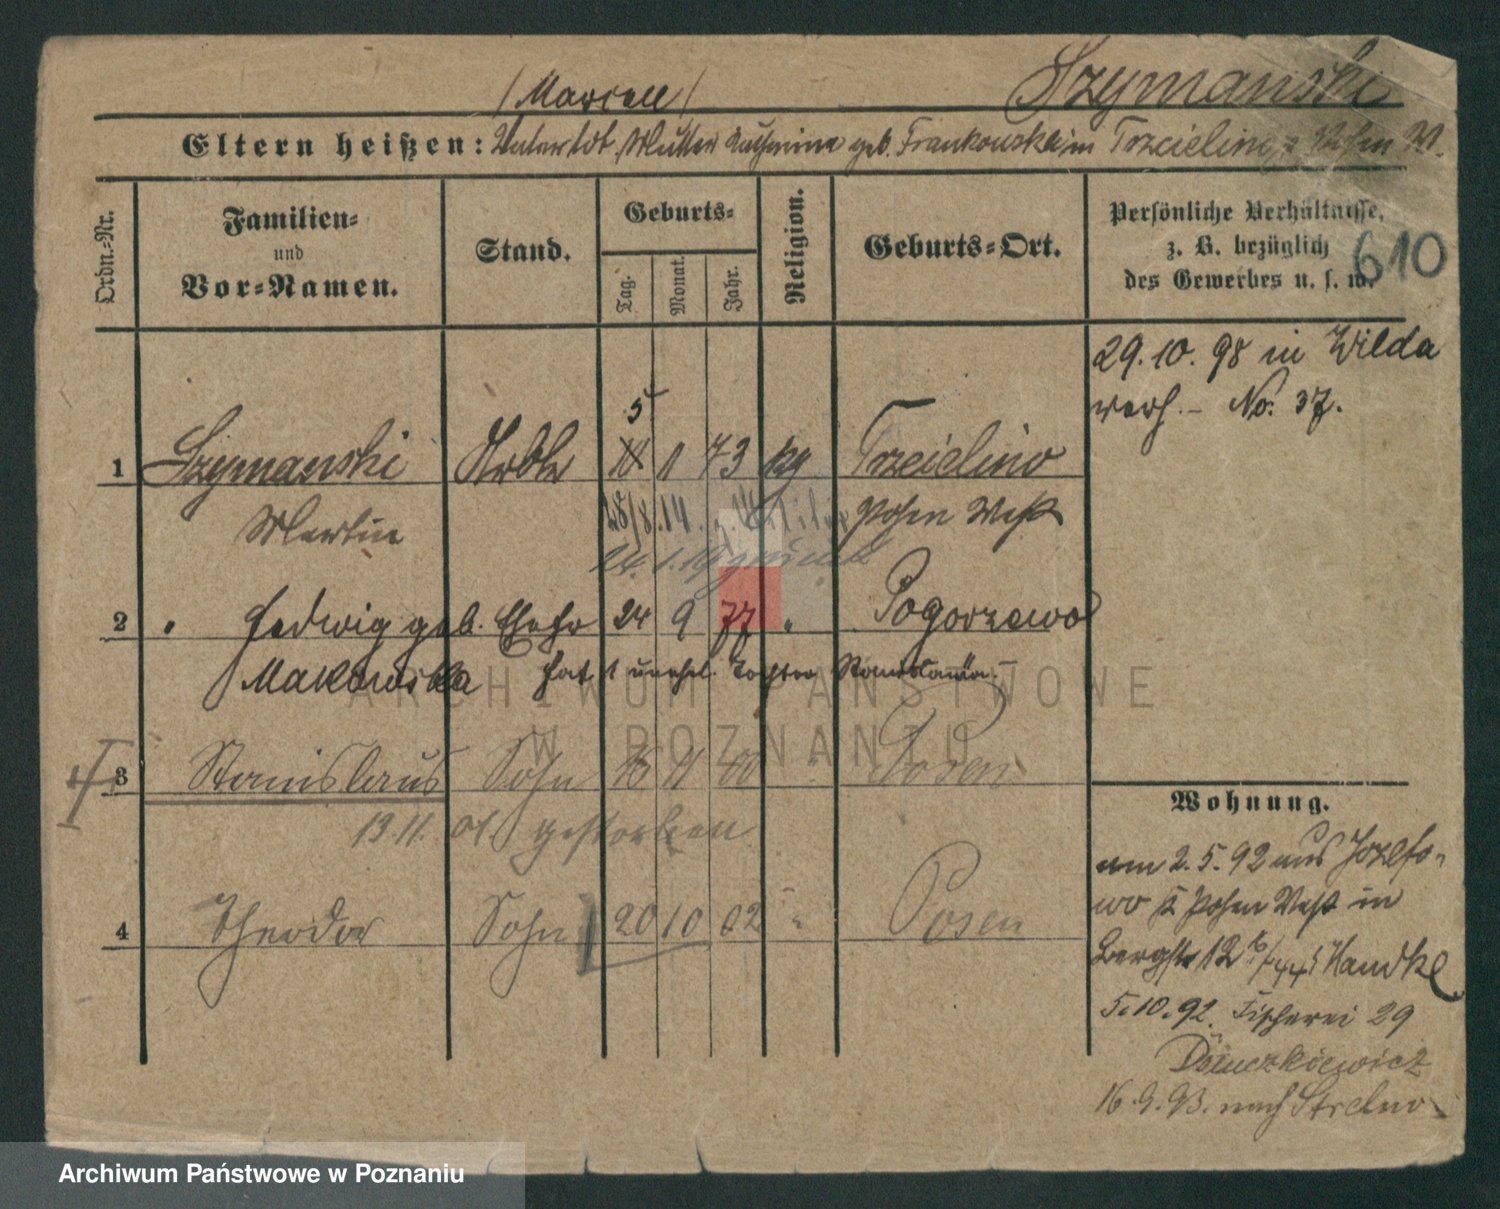 (Marcell)
Szymanski
Eltern heißen: Vater tot, Mutter geb. Frankowska in Trzcielino, Posen W.
Ordn.-Nr.
Familien-
und
Vor-Namen.
Stand.
Geburts-
Tag.
Monat.
Jahr.
Religion.
Geburts-Ort.
Persönliche Verhältnisse,
z. B. bezüglich
des Gewerbes u. s. w.
610
29.10.98 in Wilda
verh. – No. 37.
5
1 Szymanski Arbtr 10 1 73 kg Trzcielino
Martin Posen West
28/8.14.
24.1.19 zurück
2 " Hedwig geb. Ehefr 24 9 77 " Pogorzewo
Makowska hat 1 unehel. Tochter Stanislawa.
3 Stanislaus Sohn 11 00 Posen
13.11.01. gestorben
4 Theodor Sohn 20 10 02 " Posen
Wohnung.
am 2.5.92 aus Jozefo-
wo Posen West in
Bergstr 12 Handke
5.10.92. Fischerei 29
16.9.93. nach Strelno
ARCHIWUM PAŃSTWOWE
W POZNANIU
Archiwum Państwowe w Poznaniu